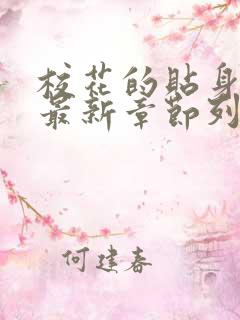 校花的貼身
最新章節列
何建春